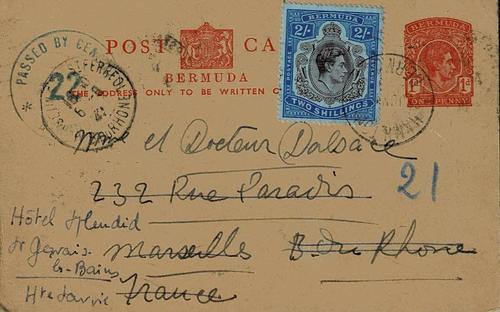 POST CARD
BERMUDA
THE ADDRESS ONLY TO BE WRITTEN
PASSED BY CENSOR
22
BERMUDA
2/- 2/-
POSTAGE
TWO SHILLINGS
BERMUDA
1d 1d
ONE PENNY
et Docteur Dalsace
232 Rue Paradis
21
Marseille B. du Rhone
France
Hôtel Splendid
St Gervais
les-Bains
Hte Savoie